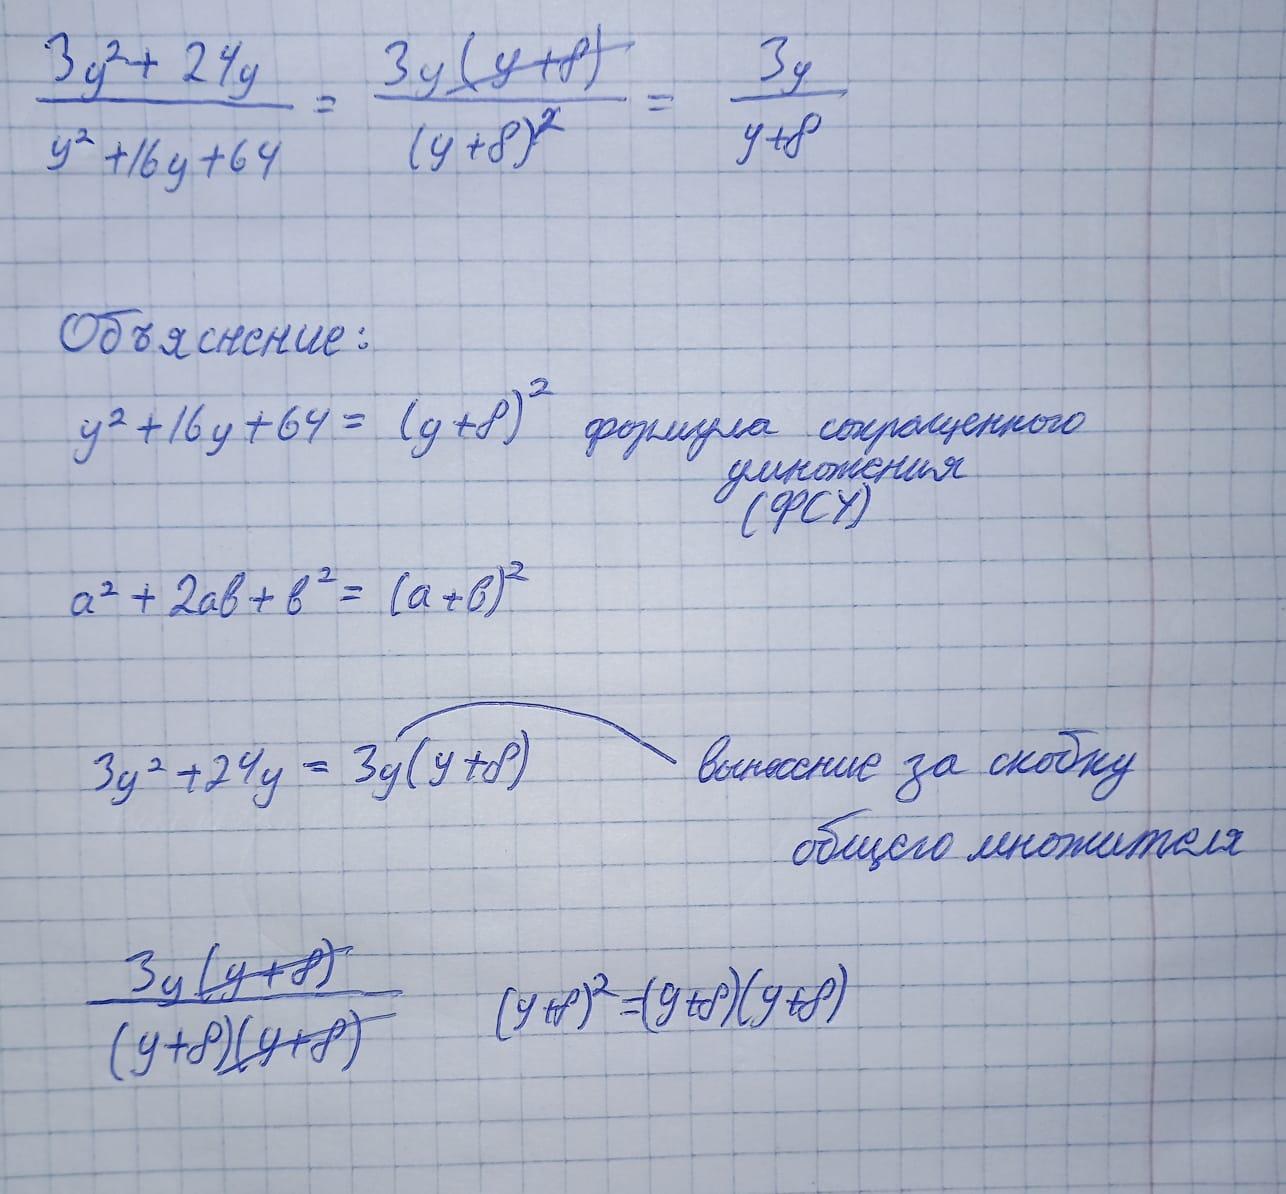 3y² + 24y / y² + 16y + 64 = 3y(y+8) / (y+8)² = 3y / y+8
Объяснение:
y² + 16y + 64 = (y+8)² формула сокращенного
умножения
(ФСУ)
a² + 2ab + b² = (a+b)²
3y² + 24y = 3y(y+8) вынесение за скобку
общего множителя
3y(y+8) / (y+8)(y+8) (y+8)² = (y+8)(y+8)